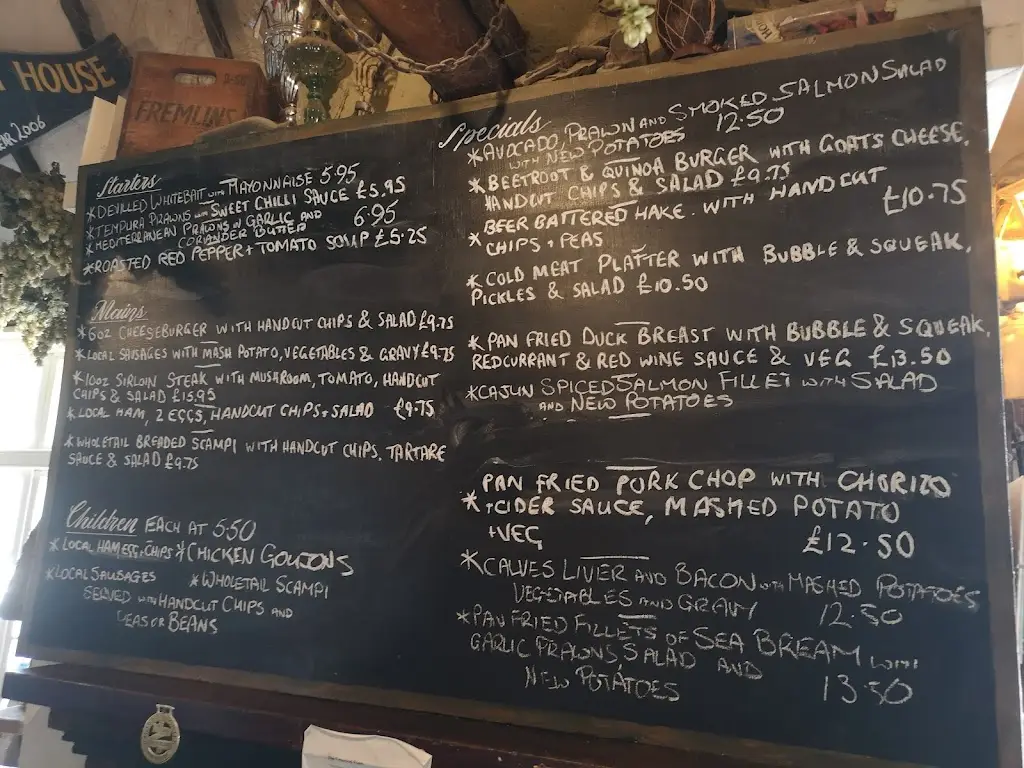 HOUSE
2006
FREMLINS
Starters
*DEVILLED WHITEBAIT WITH MAYONNAISE 5.95
*TEMPURA PRAWNS WITH SWEET CHILLI SAUCE £5.95
*MEDITERRANEAN PRAWNS IN GARLIC AND
CORIANDER BUTTER 6.95
*ROASTED RED PEPPER + TOMATO SOUP £5.25
Mains
*6OZ CHEESEBURGER WITH HANDCUT CHIPS & SALAD £9.75
*LOCAL SAUSAGES WITH MASH POTATO, VEGETABLES & GRAVY £9.75
*10OZ SIRLOIN STEAK WITH MUSHROOM, TOMATO, HANDCUT
CHIPS & SALAD £15.95
*LOCAL HAM, 2 EGGS, HANDCUT CHIPS + SALAD £9.75
*WHOLETAIL BREADED SCAMPI WITH HANDCUT CHIPS, TARTARE
SAUCE & SALAD £9.75
Children EACH AT 5.50
*LOCAL HAM EGG + CHIPS *CHICKEN GOUJONS
*LOCAL SAUSAGES *WHOLETAIL SCAMPI
SERVED WITH HANDCUT CHIPS AND
PEAS OR BEANS
Specials
*AVOCADO, PRAWN AND SMOKED SALMON SALAD
WITH NEW POTATOES 12.50
*BEETROOT & QUINOA BURGER WITH GOATS CHEESE,
HANDCUT CHIPS & SALAD £9.75
BEER BATTERED HAKE. WITH HANDCUT
* CHIPS + PEAS £10.75
*COLD MEAT PLATTER WITH BUBBLE & SQUEAK,
PICKLES & SALAD £10.50
*PAN FRIED DUCK BREAST WITH BUBBLE & SQUEAK,
REDCURRANT & RED WINE SAUCE & VEG £13.50
*CAJUN SPICED SALMON FILLET WITH SALAD
AND NEW POTATOES
PAN FRIED PORK CHOP WITH CHORIZO
* +CIDER SAUCE, MASHED POTATO
+VEG £12.50
*CALVES LIVER AND BACON WITH MASHED POTATOES
VEGETABLES AND GRAVY 12.50
*PAN FRIED FILLETS OF SEA BREAM WITH
GARLIC PRAWNS, SALAD AND
NEW POTATOES 13.50